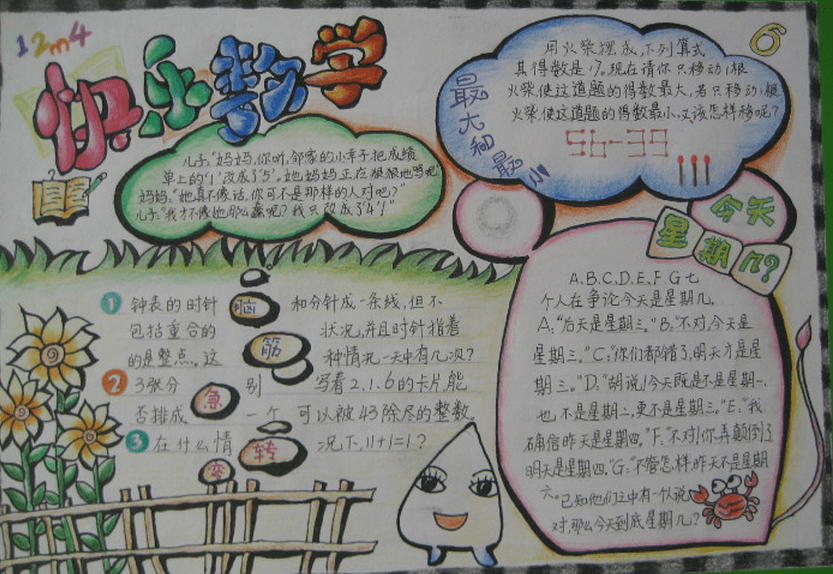 12m4
快乐数学
6
儿子:"妈妈,你听,邻家的小辛子把成绩
单上的'1'改成了'5'。她妈妈正在狠狠地骂呢
妈妈:"她真不像话,你可不是那样的人对吧?"
儿子:"我才不像她那么蠢呢?我只改成了'4'!"
最大和最小
用火柴摆成,下列算式
其得数是17。现在请你只移动1根
火柴,使这道题的得数最大,若只移动1根
火柴,使这道题的得数最小,又该怎样移呢?
56-39
今天
星期几?
A.B.C.D.E.F.G七
个人在争论今天是星期几
A:"后天是星期三。"B:"不对,今天是
星期三。"C:"你们都错了,明天才是星
期三。"D:"胡说!今天既是不是星期一,
也不是星期二,更不是星期三。"E:"我
确信昨天是星期四。"F:"不对!你弄颠倒了
明天是星期四。"G:"不管怎样,昨天不是星期
六。"已知他们之中有一个人说
对,那么今天到底星期几?
脑筋急转弯
1 钟表的时针和分针成一条线,但不
包括重合的状况,并且时针指着
的是整点。这种情况一天中有几次?
2 3张分别写着2.1.6的卡片,能
否排成一个可以被43除尽的整数
3 在什么情况下,11+1=1?